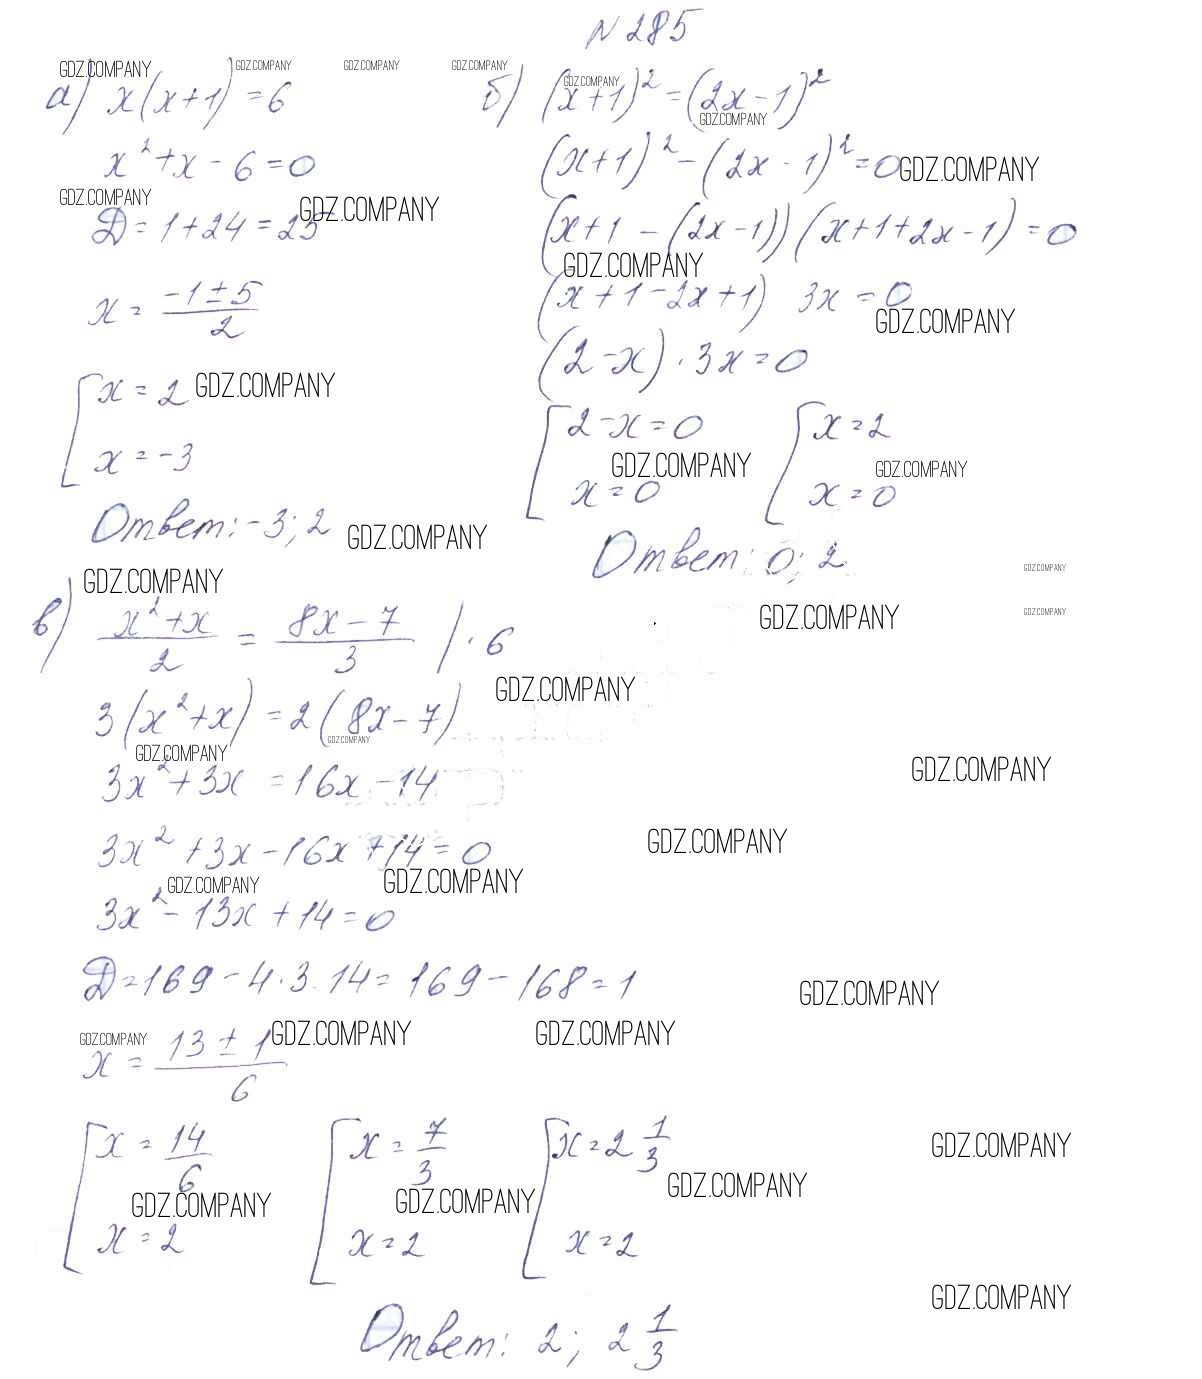 N 285
GDZ.COMPANY GDZ.COMPANY GDZ.COMPANY GDZ.COMPANY
а) x(x+1) = 6
x² + x - 6 = 0
GDZ.COMPANY
D = 1 + 24 = 25
GDZ.COMPANY
x = (-1 ± 5)/2
[ x = 2
GDZ.COMPANY
x = -3
Ответ: -3; 2
GDZ.COMPANY
GDZ.COMPANY
б) (x+1)² = (2x-1)²
GDZ.COMPANY
GDZ.COMPANY
(x+1)² - (2x-1)² = 0
GDZ.COMPANY
(x+1 - (2x-1)) (x+1+2x-1) = 0
GDZ.COMPANY
(x+1-2x+1) 3x = 0
GDZ.COMPANY
(2-x) · 3x = 0
[ 2-x = 0 [ x = 2
GDZ.COMPANY GDZ.COMPANY
x = 0 x = 0
Ответ: 0; 2
GDZ.COMPANY
GDZ.COMPANY GDZ.COMPANY
в) (x²+x)/2 = (8x-7)/3 | · 6
GDZ.COMPANY
3(x²+x) = 2(8x-7)
GDZ.COMPANY
GDZ.COMPANY GDZ.COMPANY
3x² + 3x = 16x - 14
GDZ.COMPANY
3x² + 3x - 16x + 14 = 0
GDZ.COMPANY GDZ.COMPANY
3x² - 13x + 14 = 0
D = 169 - 4·3·14 = 169 - 168 = 1
GDZ.COMPANY
GDZ.COMPANY GDZ.COMPANY GDZ.COMPANY
x = (13 ± 1)/6
[ x = 14/6 [ x = 7/3 [ x = 2 1/3
GDZ.COMPANY
GDZ.COMPANY GDZ.COMPANY GDZ.COMPANY
x = 2 x = 2 x = 2
GDZ.COMPANY
Ответ: 2; 2 1/3